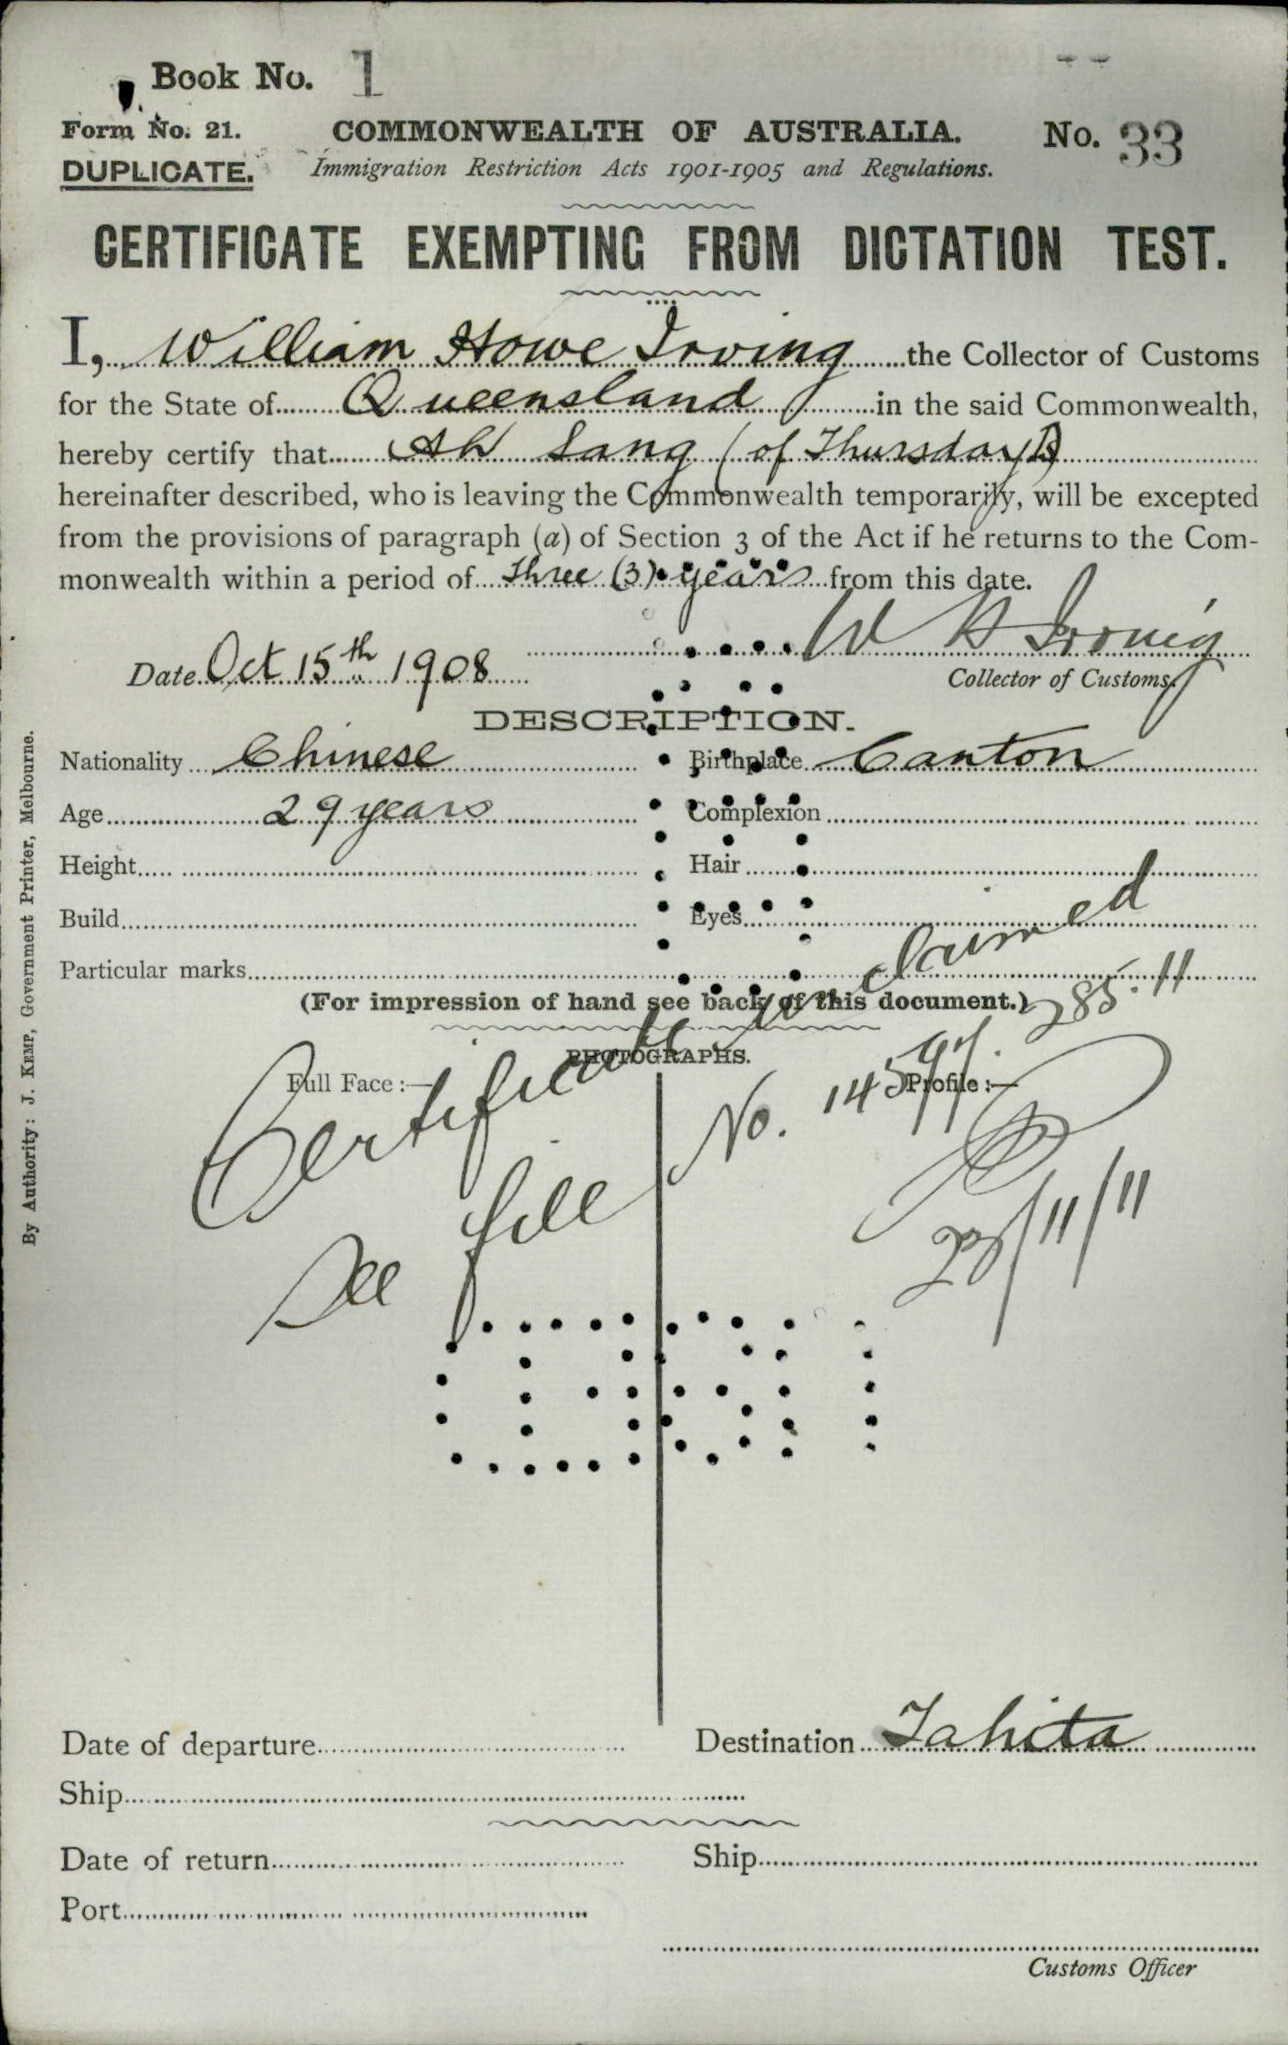 Book No. 1
Form No. 21.
COMMONWEALTH OF AUSTRALIA.
No. 33
DUPLICATE.
Immigration Restriction Acts 1901-1905 and Regulations.
CERTIFICATE EXEMPTING FROM DICTATION TEST.
I, William Howe Irving the Collector of Customs
for the State of Queensland in the said Commonwealth,
hereby certify that Ah Sang (of Thursday
hereinafter described, who is leaving the Commonwealth temporarily, will be excepted
from the provisions of paragraph (a) of Section 3 of the Act if he returns to the Com-
monwealth within a period of Three (3) years from this date.
W H Irving
Date Oct 15th 1908
Collector of Customs.
DESCRIPTION.
Nationality Chinese
Birthplace Canton
Age 29 years
Complexion
Height
Hair
Build
Eyes
Particular marks
(For impression of hand see back of this document.)
PHOTOGRAPHS.
Full Face:—
Profile:—
Certificate unclaimed
See file No. 14597. 285.11
23/11/11
Date of departure
Destination Tahita
Ship
Date of return
Ship
Port
Customs Officer
By Authority: J. KEMP, Government Printer, Melbourne.